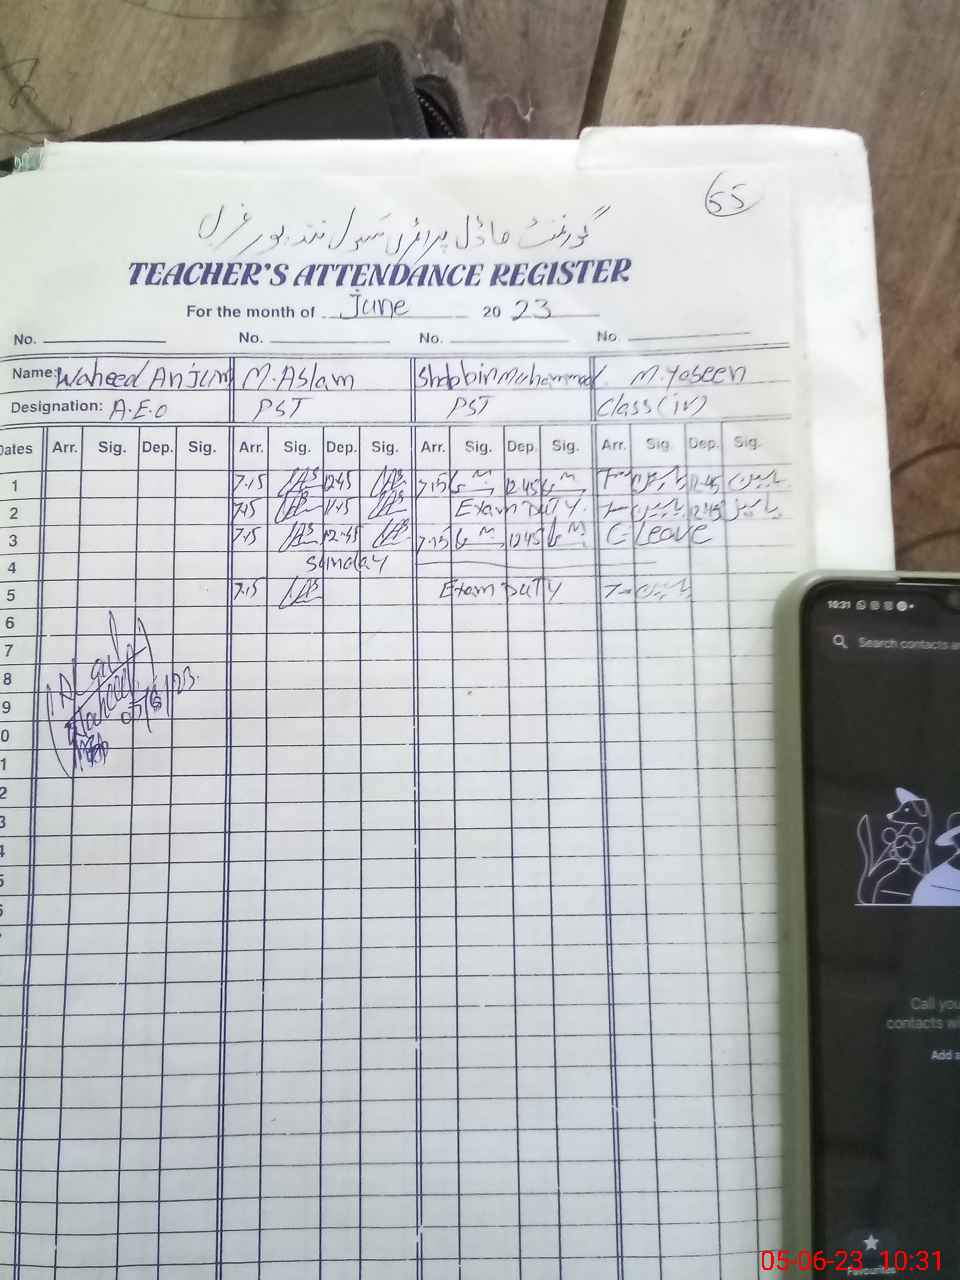 55
گورنمنٹ ماڈل پرائمری سکول
TEACHER'S ATTENDANCE REGISTER
For the month of June 2023
No. No. No. No.
Name: Waheed Anjum M. Aslam Shabbir Mohammad M. Yaseen
Designation: A.E.O PST PST Class (iv)
Dates Arr. Sig. Dep. Sig. Arr. Sig. Dep. Sig. Arr. Sig. Dep. Sig. Arr. Sig. Dep. Sig.
1 7.15 12.45 7.15 12.45 7- یاسین 12.45 یاسین
2 7.15 11.45 Exam DUTY. 7- یاسین 12.45 یاسین
3 7.15 12.45 7.15 12.45 C-Leave
4 Sunday
5 7.15 Exam DUTY 7- یاسین
6
7
8
9
0
1
2
3
4
5
6
Waheed
05/6/23.
10:31
Search contacts
Call you
contacts wi
Add a
Favourites
05-06-23 10:31